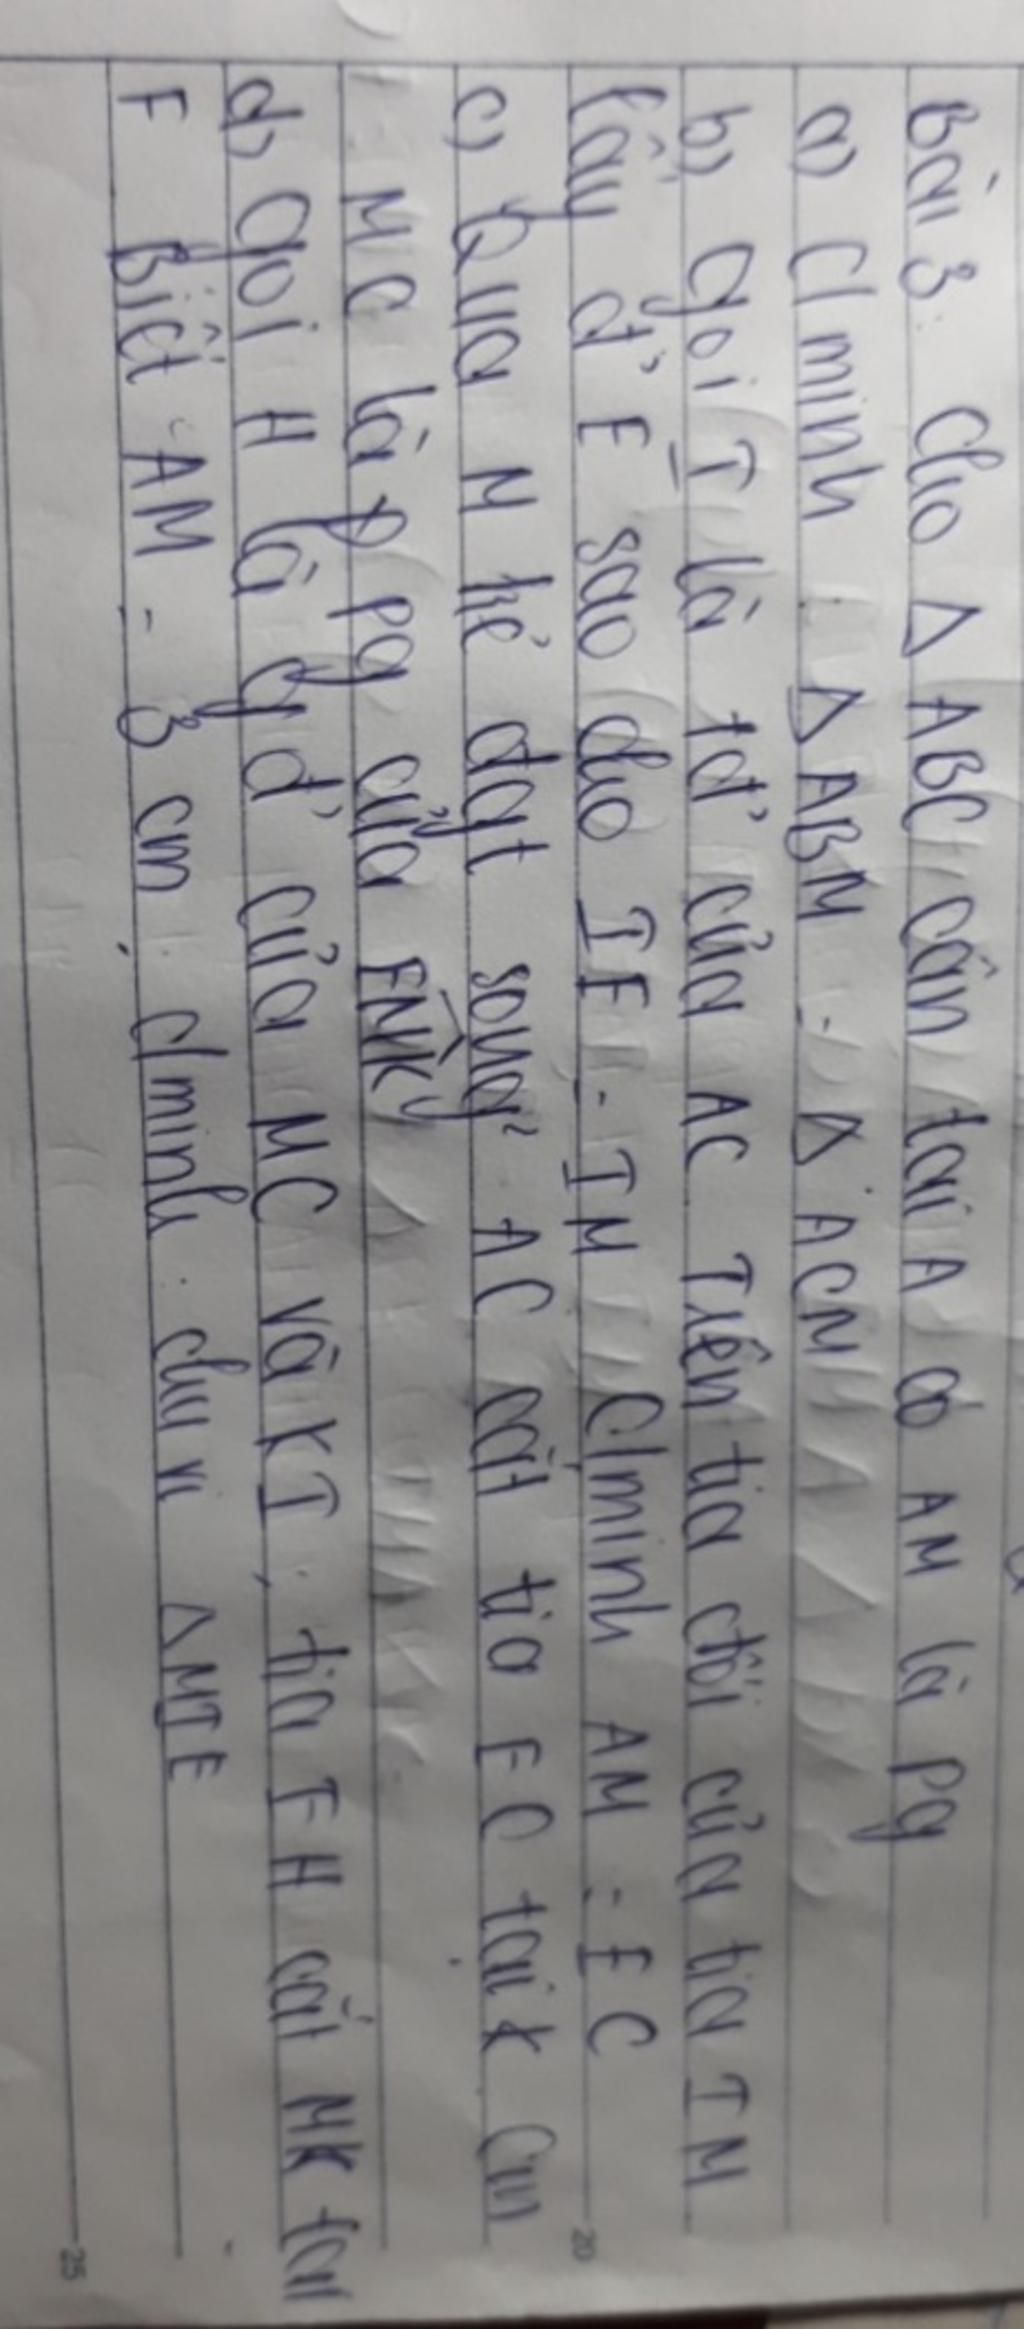 Bài 3. Cho Δ ABC cân tại A có AM là pg
a) C/minh Δ ABM = Δ ACM
b) Gọi I là tđ' của AC Trên tia đối của tia IM
lấy đ' E sao cho IE = IM C/minh AM = EC
c) Qua M kẻ đgt song² AC cắt tia EC tại K Cm
MC là pg của EMK
d) Gọi H là gđ' của MC và KI, tia EH cắt MK tại
F Biết AM = 3 cm. C/minh chu vi Δ MIE
20
25